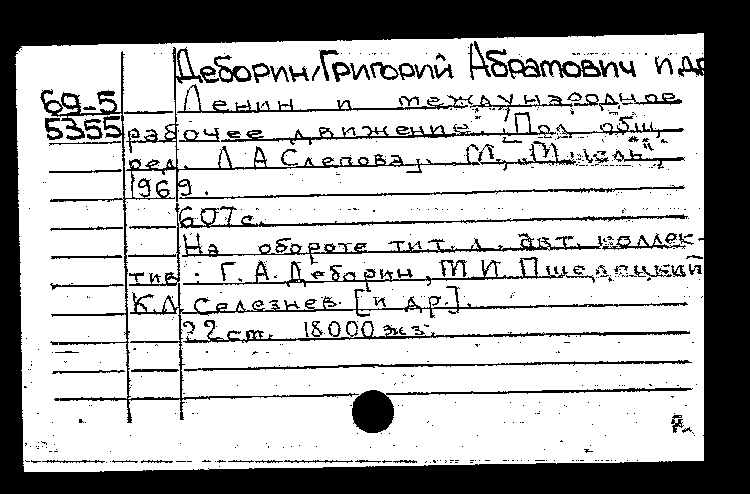 Деборин, Григорий Абрамович и др
69-5 Ленин и международное
5355 рабочее движение. [Под общ.
ред. Л А Слепова]. М., "Мысль",
1969.
607 с.
На обороте тит. л. авт. коллек-
тив: Г. А. Деборин, М И. Пшедецкий
К. Л. Селезнев [и др.].
22 см. 18000 экз.